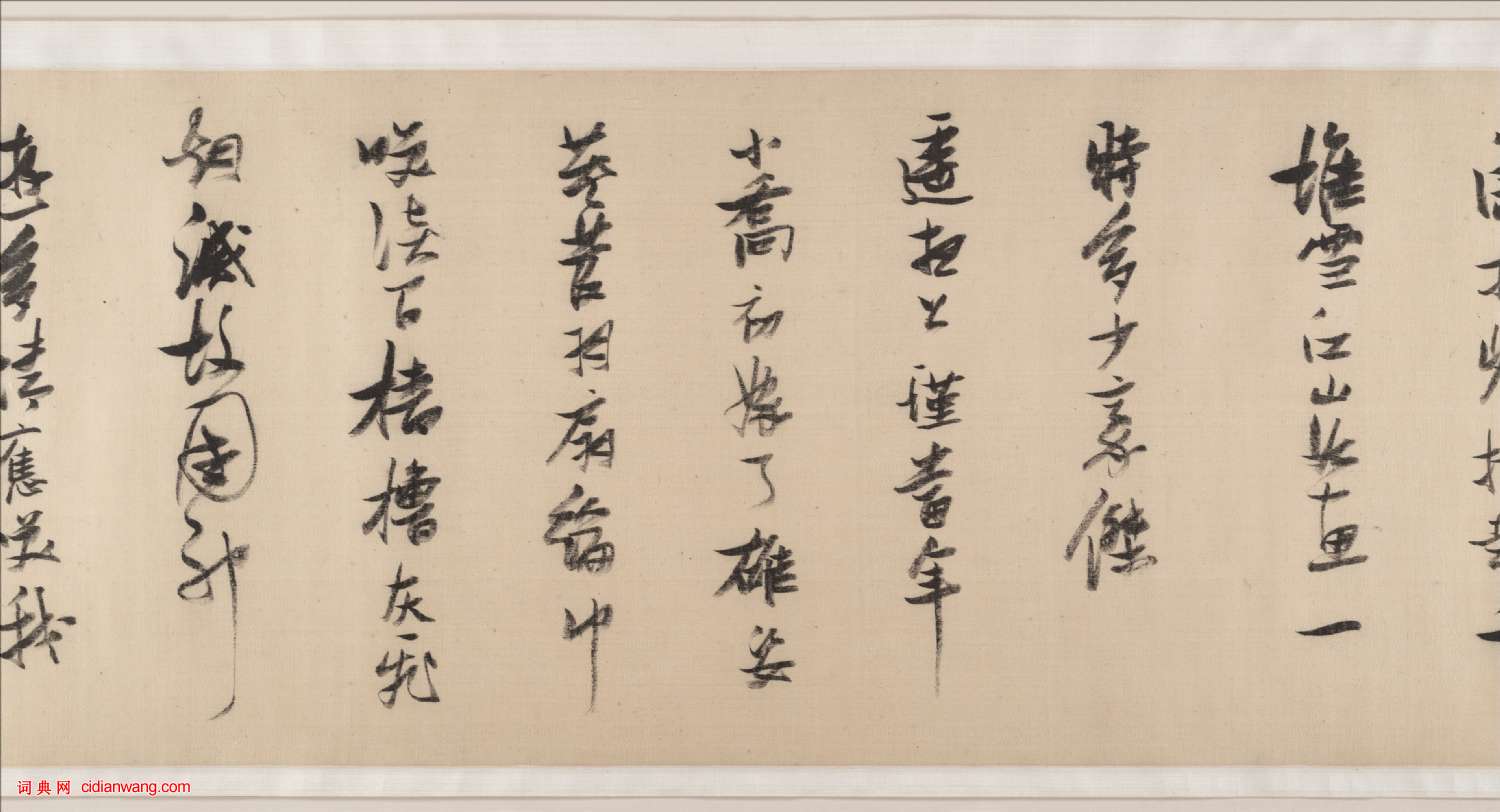 堆雪江山如畫一
時多少豪傑
遙想公瑾當年
小喬初嫁了雄姿
英發羽扇綸巾
咲談間檣櫓灰飛
烟滅故國神
遊多情應咲我
词典网 cidianwang.com